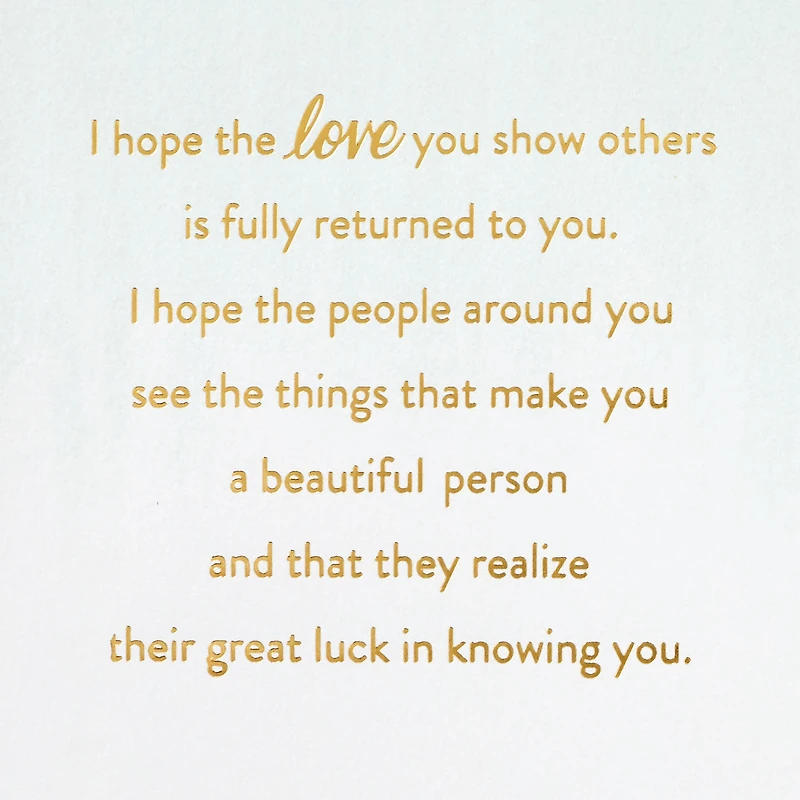 I hope the love you show others
is fully returned to you.
I hope the people around you
see the things that make you
a beautiful person
and that they realize
their great luck in knowing you.